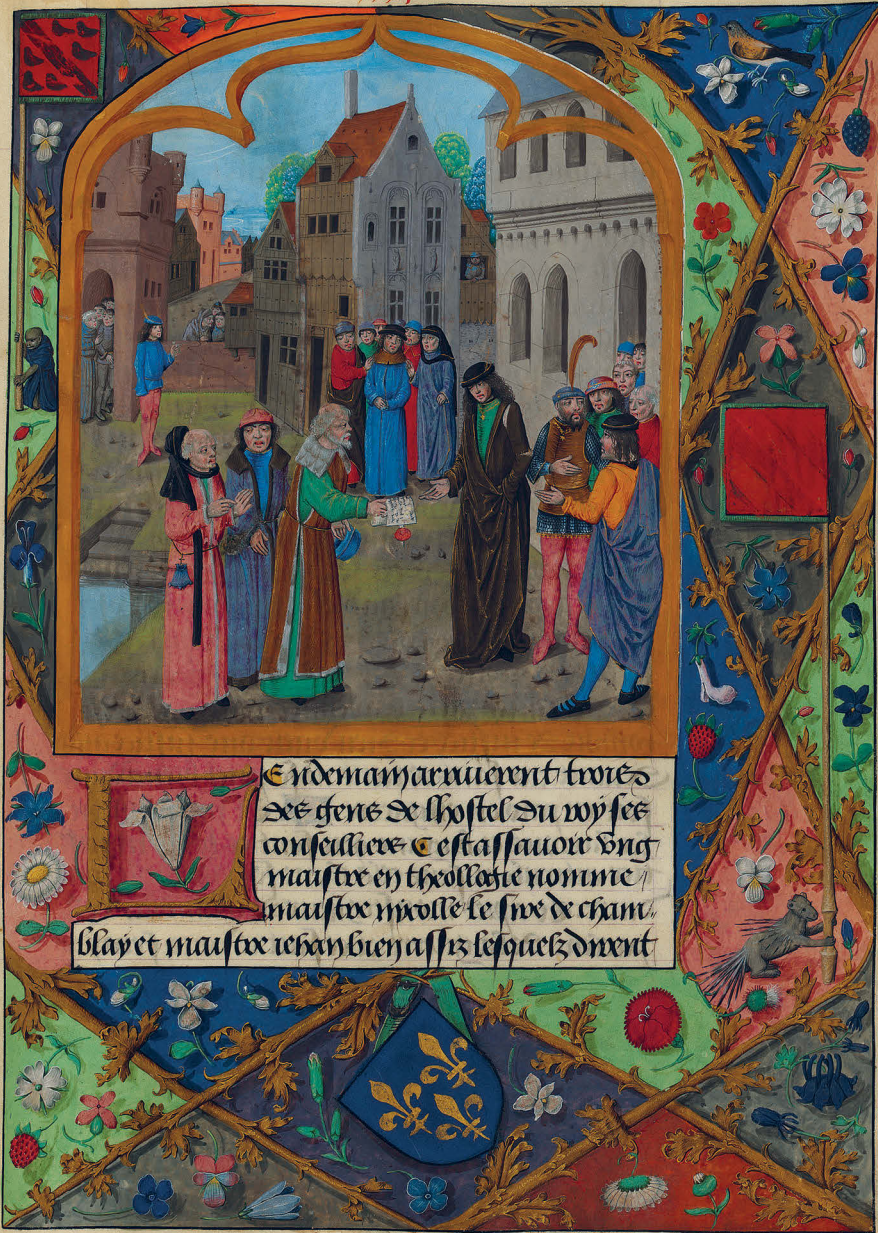 Endemain arriuerent trois
des gens de lhostel du roy ses
conseilliers Cestassauoir vng
maistre en theologie nomme
maistre nicolle le sire de cham-
blay et maistre iehan bien assiz lesquelz dirent